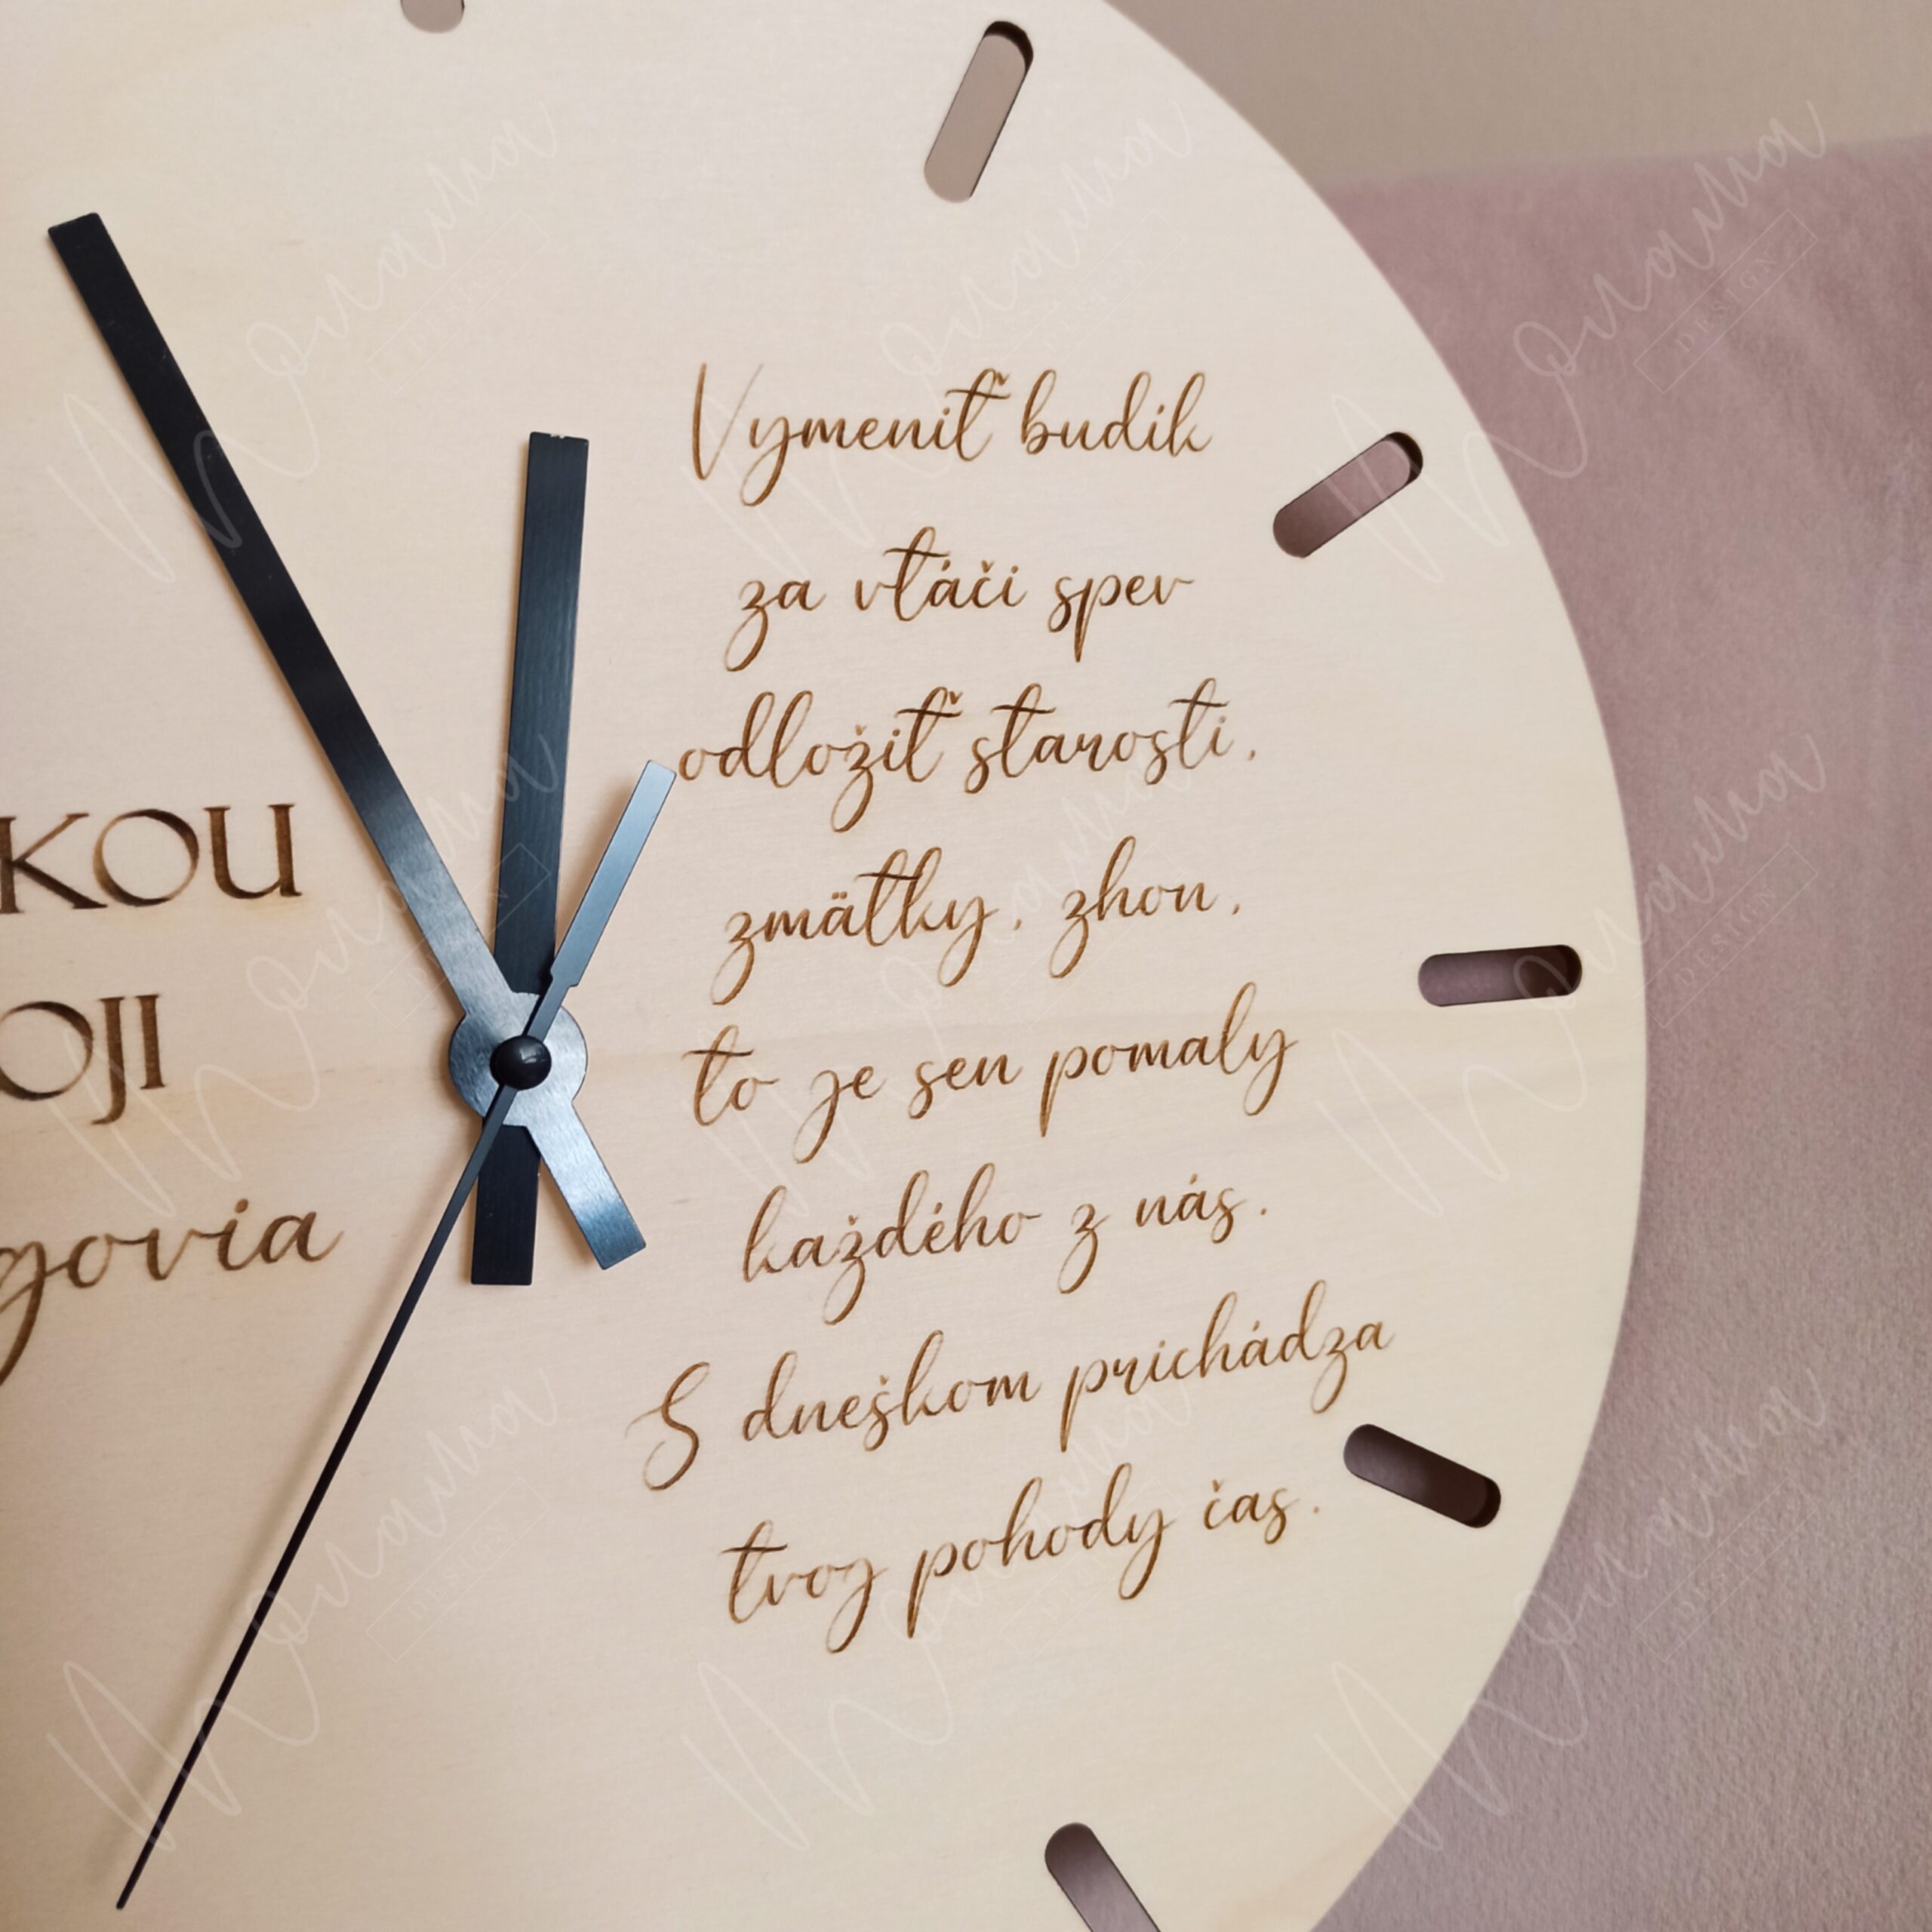 KOU
OJI
govia
Vymeniť budík
za vtáčí spev
odložiť starosti,
zmätky, zhon,
to je sen pomaly
každého z nás.
S dneškom prichádza
tvoj pohody čas.
DESIGN